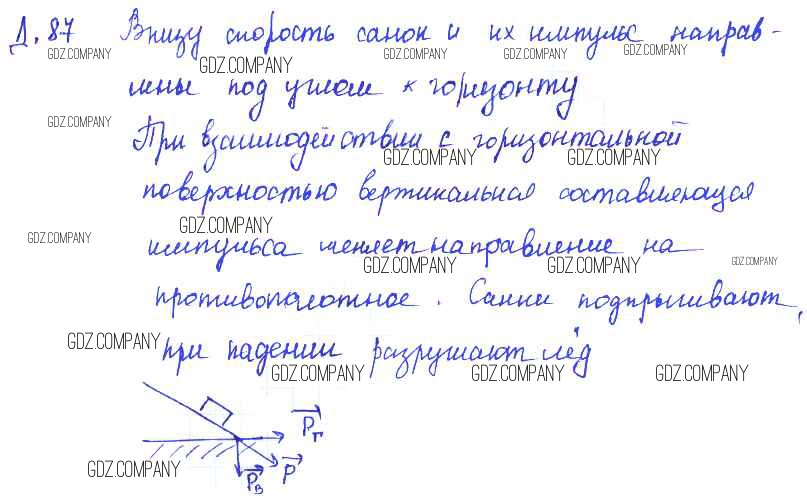 Д. 87 Внизу скорость санок и их импульс направ-
лены под углом к горизонту
При взаимодействии с горизонтальной
поверхностью вертикальная составляющая
импульса меняет направление на
противоположное. Санки подпрыгивают,
при падении разрушают лёд
Pг
Pв P
GDZ.COMPANY GDZ.COMPANY GDZ.COMPANY GDZ.COMPANY
GDZ.COMPANY
GDZ.COMPANY
GDZ.COMPANY GDZ.COMPANY
GDZ.COMPANY
GDZ.COMPANY
GDZ.COMPANY GDZ.COMPANY GDZ.COMPANY
GDZ.COMPANY
GDZ.COMPANY GDZ.COMPANY GDZ.COMPANY
GDZ.COMPANY